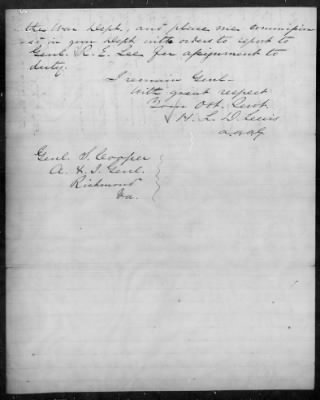 the War Dept, and place me commission
ed in your Dept with orders to report to
Genl. R. E. Lee for assignment to
duty.
I remain Genl-
With great respect
Your Obt. Servt.
H. L. D. Lewis
Genl. S. Cooper
A. & I. Genl.
Richmond
Va.